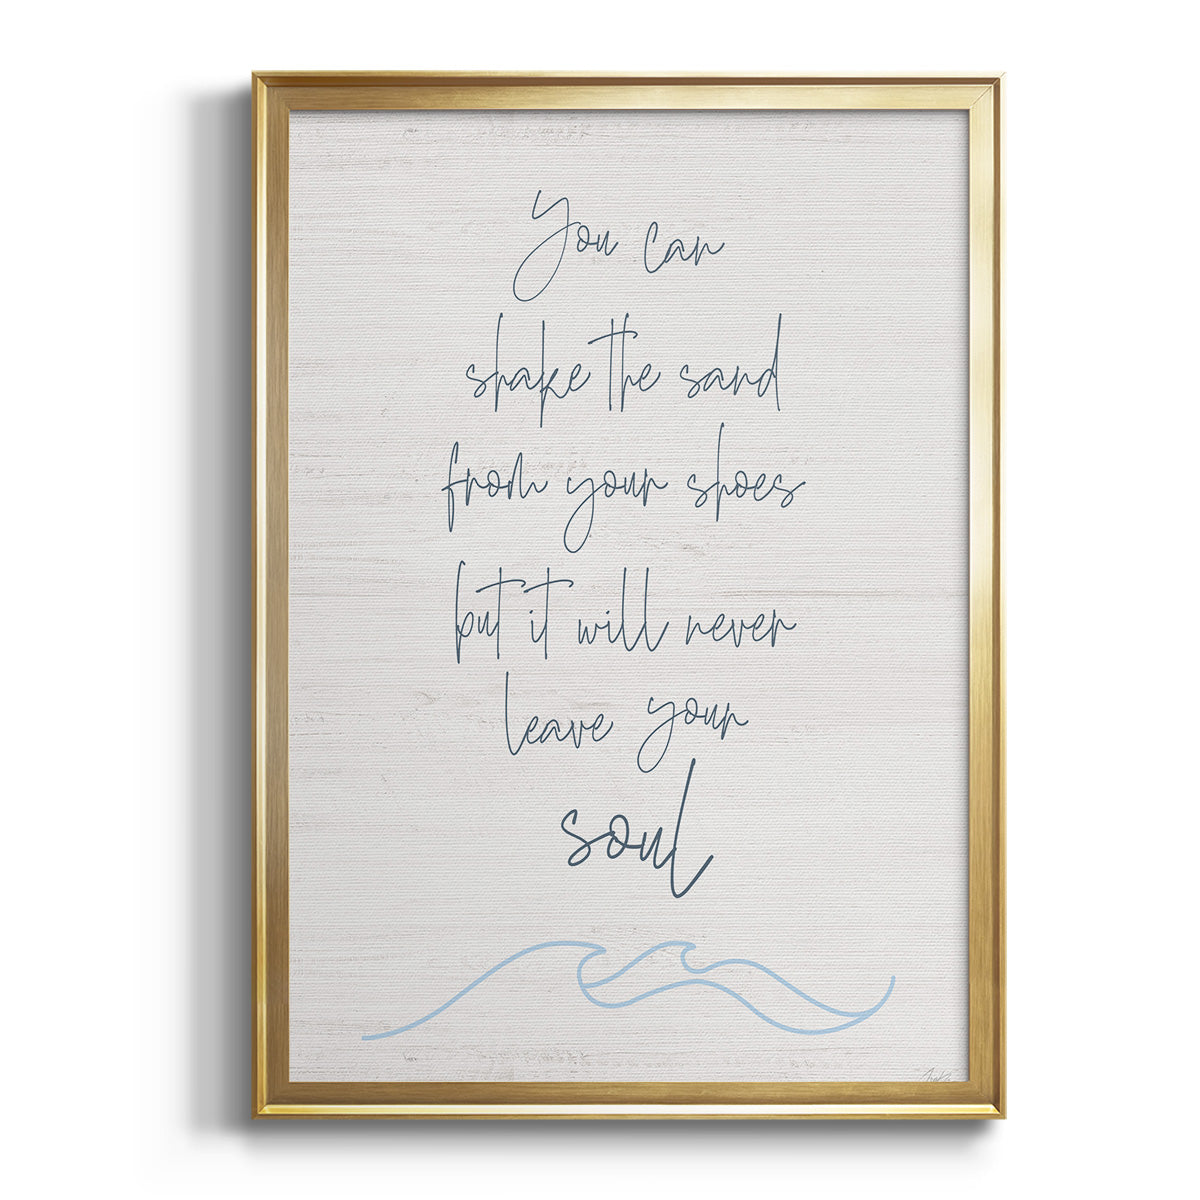 You can
shake the sand
from your shoes
but it will never
leave your
soul